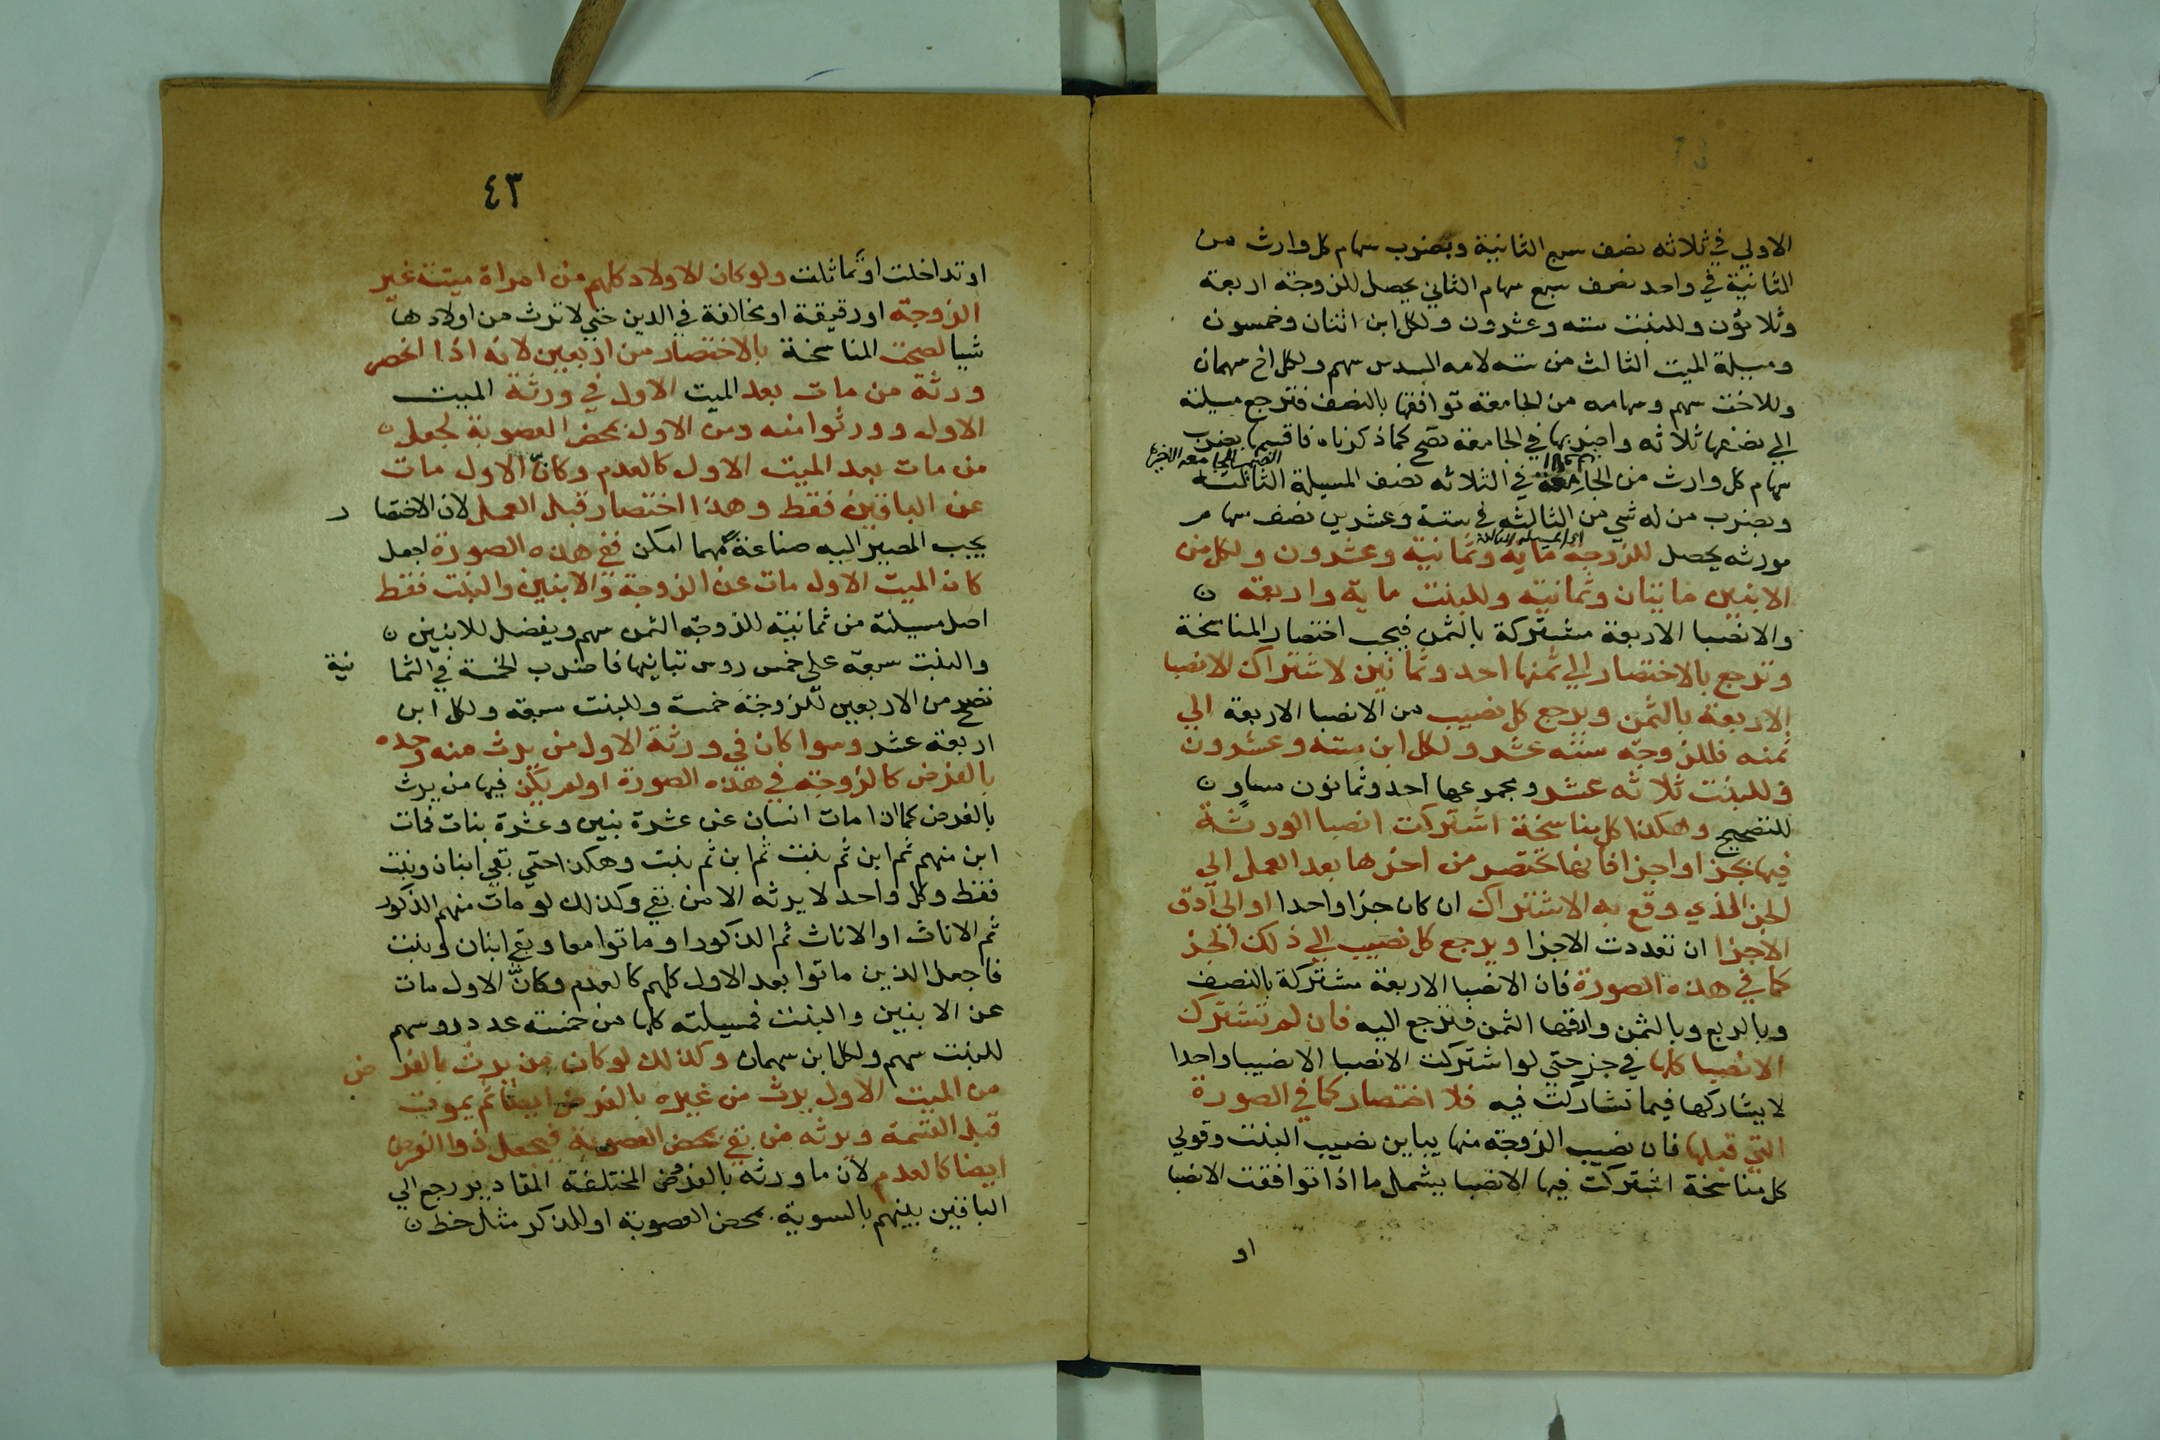 الاولي في ثلاثه نصف سهم الثانية وبضرب سهام كل وارث من
الثانية في واحد نصف سهم سهام الثاني يحصل للزوجة اربعة
وثلاثون وللبنت سته وعشرون ولكل ابن اثنان وخمسون
ومسيلة الميت الثالث من سته لامه السدس سهم ولكل اخ سهمان
وللاخت سهم وسهامه من الجامعة توافقها بالنصف فترجع مسيلته
الي نصفها ثلاثه واضربها في الجامعة تصح كما ذكرناه فاقسمها بضرب
سهام كل وارث من الجامعة في الثلاثه نصف المسيلة الثالثه
وبضرب من له شي من الثالثه في ستة وعشرين نصف سهام
اي المسيله الثالثه
مورثه يحصل للزوجة ماية وثمانية وعشرون ولكل من
الابنين مايتان وثمانية وللبنت ماية واربعة ن
والانصبا الاربعة مشتركة بالثمن فيجب اختصار المناسخة
وترجع بالاختصار الي ثمنها احد وثمانين لاشتراك الانصبا
الاربعة بالثمن ويرجع كل نصيب من الانصبا الاربعة الي
ثمنه فللزوجه سته عشر ولكل ابن سته وعشرون
وللبنت ثلاثه عشر ومجموعها احد وثمانون مساوٍ ن
للتصحيح وهكذا كل مناسخة اشتركت انصبا الورثة
فيها بجزء او اجزا فانها تختصر من اخرها بعد العمل الي
الجز الذي وقع به الاشتراك ان كان جزا واحدا او الي ادق
الاجزا ان تعددت الاجزا ويرجع كل نصيب الي ذلك الجز
كما في هذه الصورة فان الانصبا الاربعة مشتركة بالنصف
وبالربع وبالثمن وادقها الثمن فترجع اليه فان لم تشترك
الانصبا كلها في جز حتي لو اشتركت الانصبا الا نصيبا واحدا
لا يشاركها فيما تشاركت فيه فلا اختصار كما في الصورة
التي قبلها فان نصيب الزوجة منها يباين نصيب البنت وقولي
كل مناسخة اشتركت فيها الانصبا يشمل ما اذا توافقت الانصبا
او
٤٣
او تداخلت او تماثلت ولو كان الاولاد كلهم من امراة ميتة غير
الزوجة او رقيقة او مخالفة في الدين حتي لا ترث من اولادها
شيا لصحت المناسخة بالاختصار من اربعين لانه اذا انحصر
ورثة من مات بعد الميت الاول في ورثة الميت
الاول وورثوا منه ومن الاول بمحض العصوبة لجعل ن
من مات بعد الميت الاول كالعدم وكانّ الاول مات
عن الباقين فقط وهذا اختصار قبل العمل لان الاختصار
يجب المصير اليه صناعة مهما امكن ففي هذه الصورة اجعل
كان الميت الاول مات عن الزوجة والابنين والبنت فقط
اصل مسيلته من ثمانية للزوجة الثمن سهم ويفضل للابنين ن
والبنت سبعة علي خمس روس تباينها فاضرب الخمسة في الثمانية
تصح من الاربعين للزوجة خمسة وللبنت سبعة ولكل ابن
اربعة عشر وسوا كان في ورثة الاول من يرث منه وحده
بالفرض كالزوجة في هذه الصورة او لم يكن فيها من يرث
بالفرض كما اذا مات انسان عن عشرة بنين وعشرة بنات فمات
ابن منهم ثم ابن ثم بنت ثم ابن ثم بنت وهكذا حتي بقي ابنان وبنت
فقط وكل واحد لا يرثه الا من بقي وكذلك لو مات منهم الذكور
ثم الاناث او الاناث ثم الذكور او ماتوا معا وبقي ابنان وبنت
فاجعل الذين ماتوا بعد الاول كلهم كالعدم وكانّ الاول مات
عن الابنين والبنت فمسيلته كلها من خمسة عدد روسهم
للبنت سهم ولكل ابن سهمان وكذلك لو كان من يرث بالفرض
من الميت الاول يرث من غيره بالفرض ايضا ثم يموت
قبل القسمة ويرثه من بقي بمحض العصوبة فيجعل ذوا الفرض
ايضا كالعدم لان ما ورثه بالفروض المختلفة المقادير رجع الي
الباقين بينهم بالسوية بمحض العصوبة او للذكر مثل حظ ن